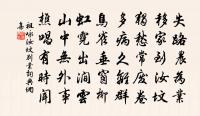 失路農為業
移家到汝墳
獨愁常廢卷
多病久離群
鳥雀垂窗柳
虹霓出澗雲
山中無外事
樵唱有時聞
祖詠汝墳別業詞典網
集